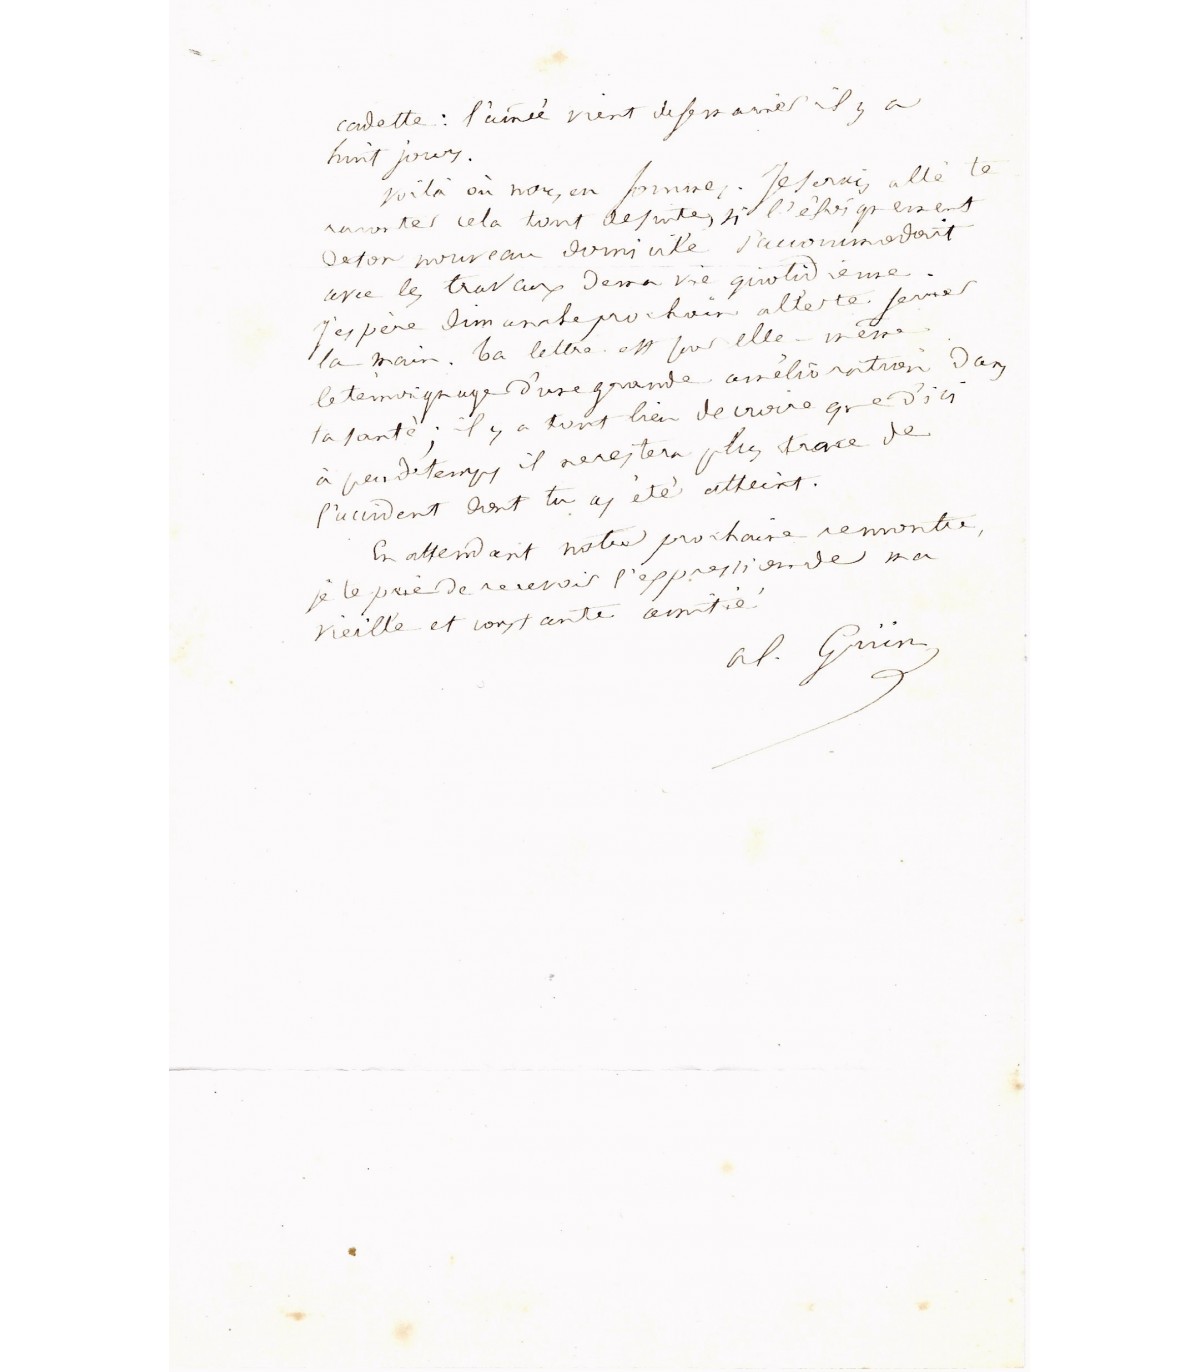 cadette : l'aînée vient de se marier il y a
huit jours.
Voilà où nous en sommes. Je serais allé te
raconter cela tout de suite, si l'éloignement
de ton nouveau domicile s'accommodait
avec les travaux de ma vie quotidienne.
J'espère dimanche prochain aller te serrer
la main. Ta lettre est par elle-même
le témoignage d'une grande amélioration dans
ta santé ; il y a tout lieu de croire que d'ici
à peu de temps il ne restera plus trace de
l'accident dont tu as été atteint.
En attendant notre prochaine rencontre,
je te prie de recevoir l'expression de ma
vieille et constante amitié
al. Grün